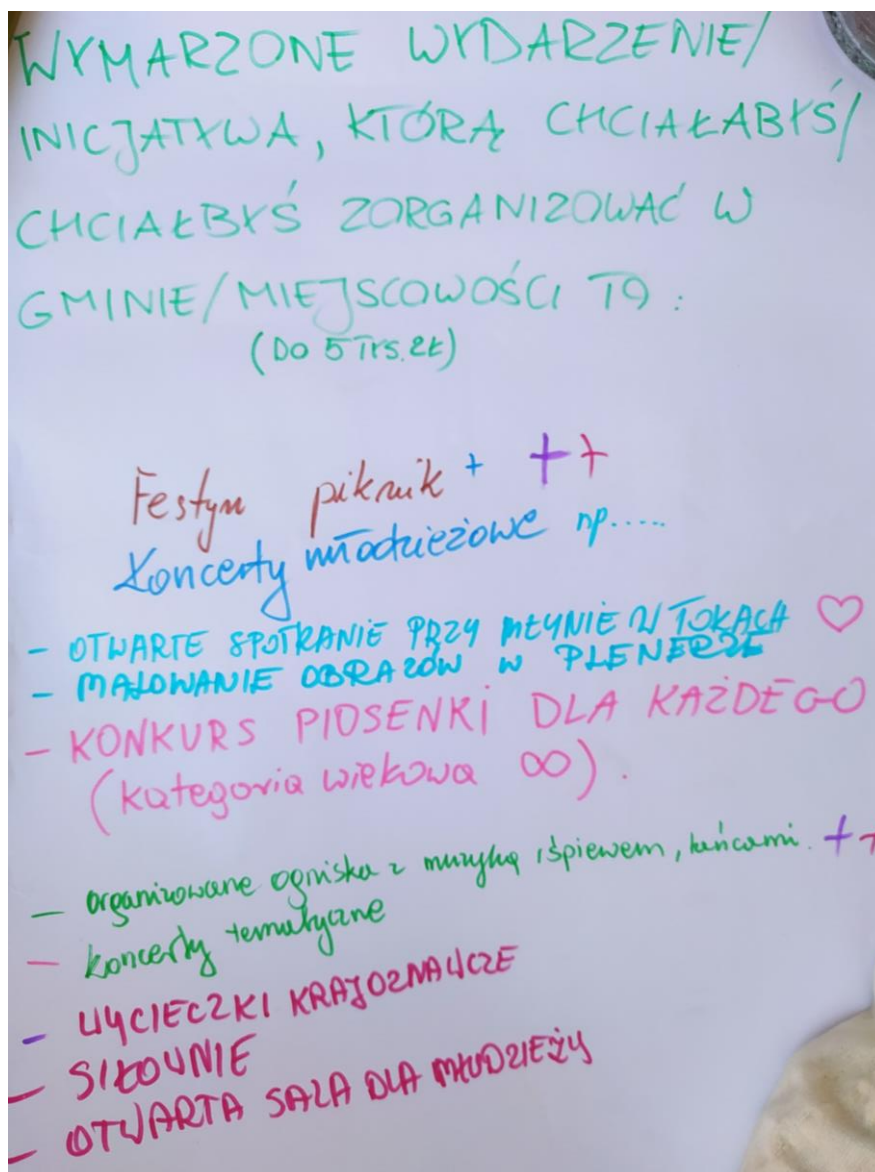 WYMARZONE WYDARZENIE/
INICJATYWA, KTÓRĄ CHCIAŁABYŚ/
CHCIAŁBYŚ ZORGANIZOWAĆ W
GMINIE/MIEJSCOWOŚCI TO:
(DO 5 TYS. ZŁ)
Festyn piknik + ++
Koncerty młodzieżowe np.....
- OTWARTE SPOTKANIE PRZY MŁYNIE W ŁOKACH ♡
- MALOWANIE OBRAZÓW W PLENERZE
- KONKURS PIOSENKI DLA KAŻDEGO
(kategoria wiekowa ∞).
- organizowane ogniska z muzyką i śpiewem, tańcami. ++
- koncerty tematyczne
- WYCIECZKI KRAJOZNAWCZE
- SIŁOWNIE
- OTWARTA SALA DLA MŁODZIEŻY